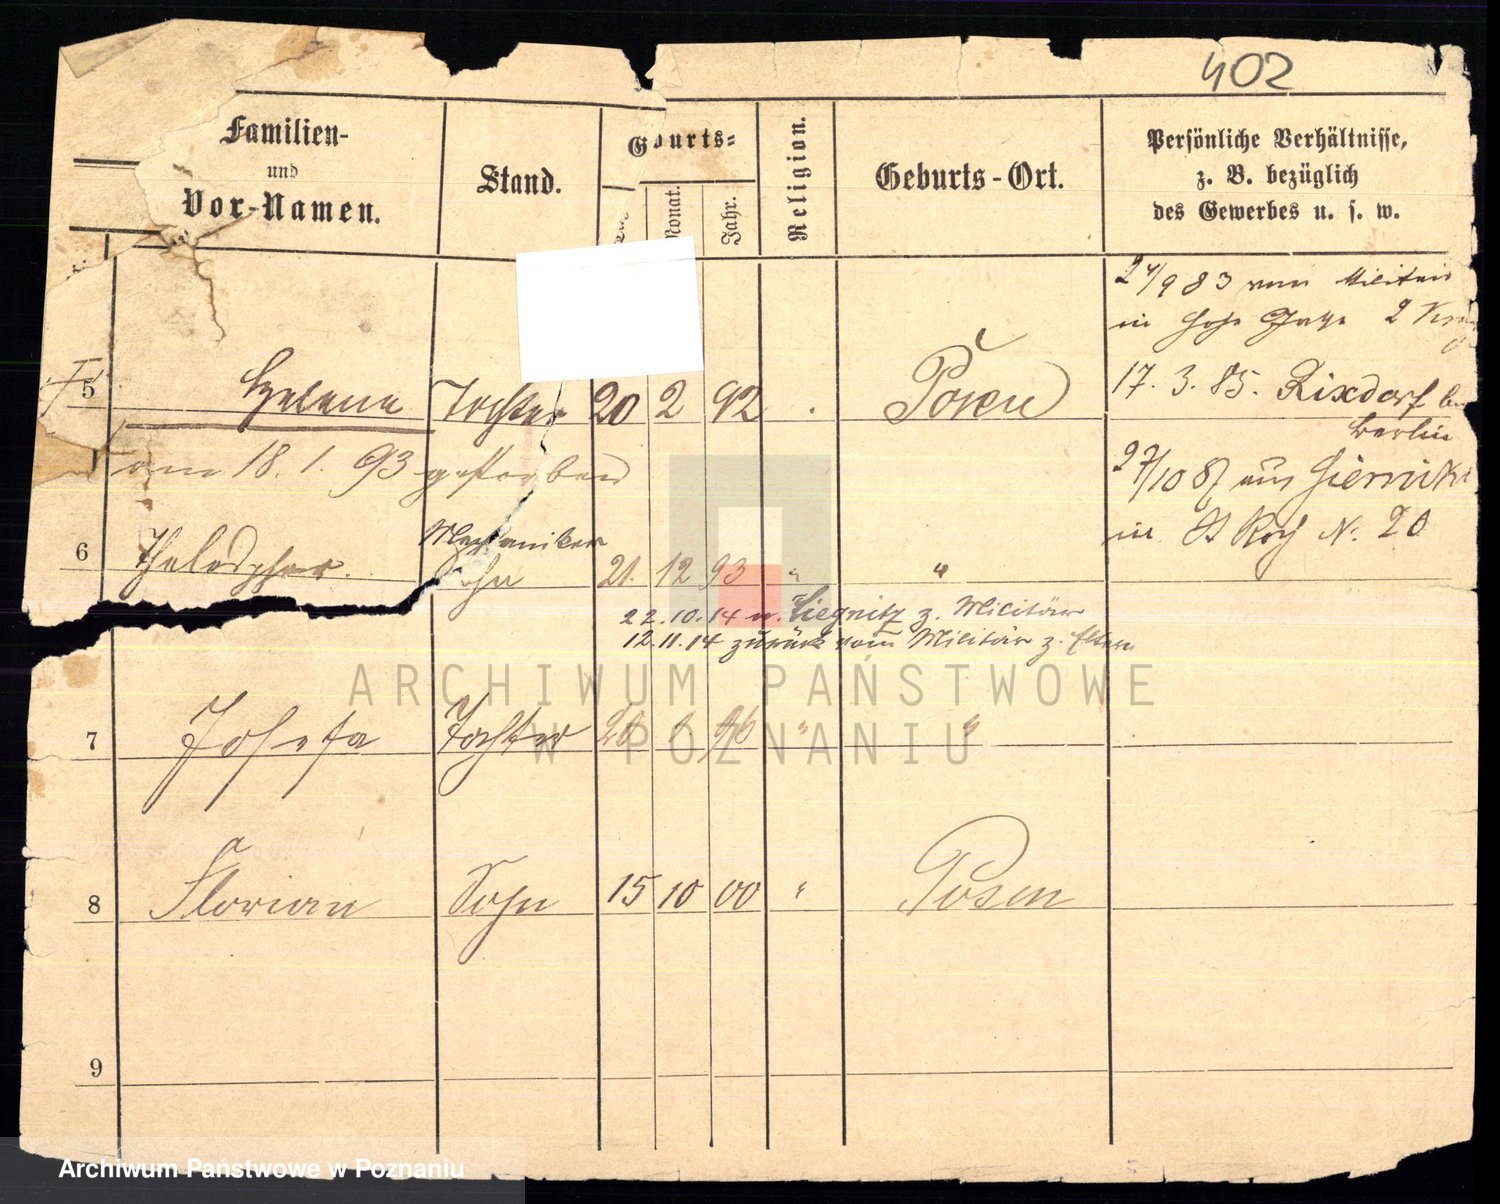 402
Familien-
und
Vor-Namen.
Stand.
Geburts-
Monat.
Jahr.
Religion.
Geburts-Ort.
Persönliche Verhältnisse,
z. B. bezüglich
des Gewerbes u. s. w.
2 4/9 83 vom Militair
in Hohe Gasse 2
5 Helena Tochter 20 2 92 . Posen
17. 3. 85. Rixdorf b
Berlin
am 18. 1. 93 gestorben
2 7/10 87 aus
in St Roch N. 20
Mechaniker
6 Sohn 21. 12 93 " "
22.10.14 n. Liegnitz z. Militär
12.11.14 zurück vom Militär z. Eltern
7 Josefa Tochter 96 " "
8 Florian Sohn 15 10 00 " Posen
9
ARCHIWUM PAŃSTWOWE
W POZNANIU
Archiwum Państwowe w Poznaniu